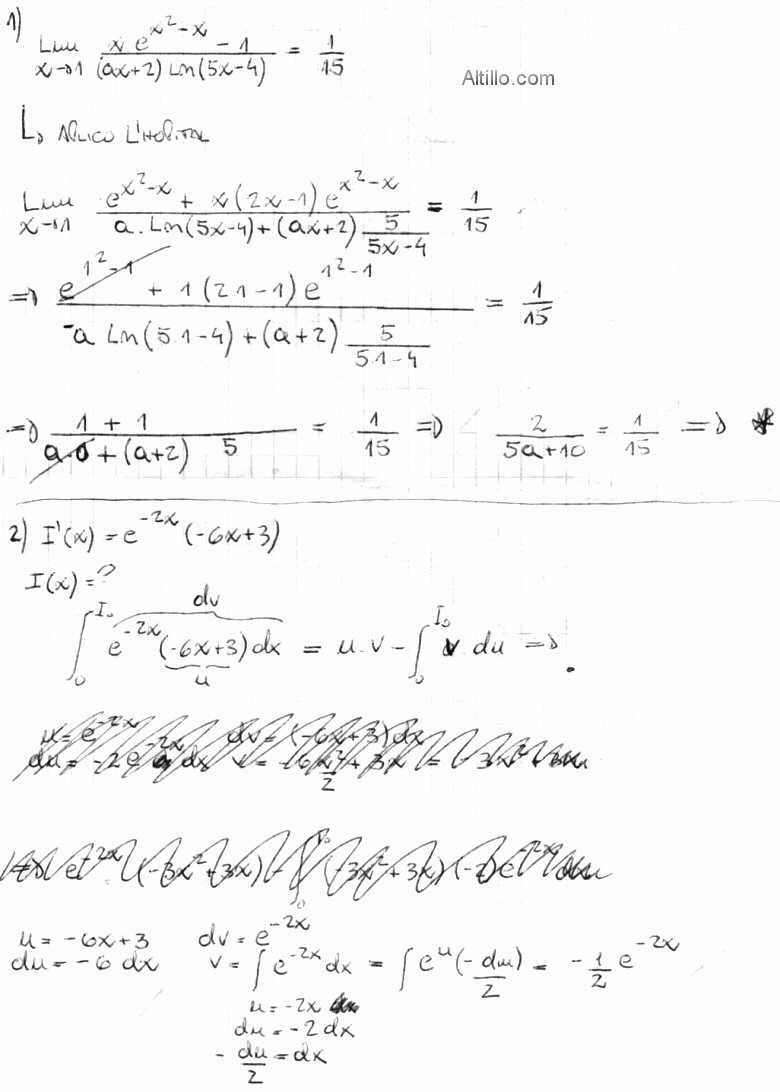 1)
Lim x→1 (x e^(x²-x) - 1)/((ax+2) Ln(5x-4)) = 1/15
Altillo.com
↳ APLICO L'HOPITAL
Lim x→1 (e^(x²-x) + x(2x-1) e^(x²-x))/(a. Ln(5x-4) + (ax+2) 5/(5x-4)) = 1/15
⇒ (e^(1²-1) + 1(2.1-1) e^(1²-1))/(a Ln(5.1-4) + (a+2) 5/(5.1-4)) = 1/15
⇒ (1+1)/(a.0 + (a+2) 5) = 1/15 ⇒ 2/(5a+10) = 1/15 ⇒ *
2) I'(x) = e^(-2x) (-6x+3)
I(x) = ?
dv
∫₀^I₀ e^(-2x) (-6x+3) dx = u.v - ∫₀^I₀ v du ⇒
u
u = e^(-2x) dv = (-6x+3) dx
u = -6x+3 dv = e^(-2x)
du = -6 dx v = ∫ e^(-2x) dx = ∫ e^u (-du/2) = -1/2 e^(-2x)
u = -2x
du = -2 dx
-du/2 = dx